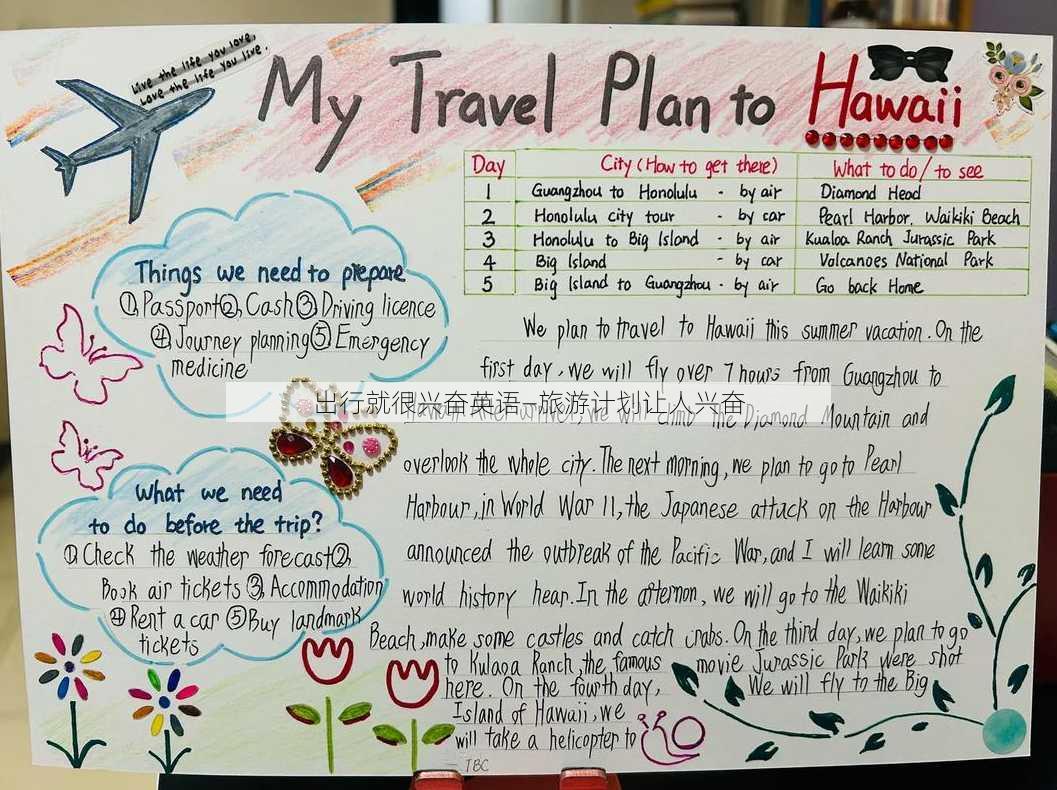 Live the life you love,
Love the life you live.
My Travel Plan to Hawaii
Day City (How to get there) What to do / to see
1 Guangzhou to Honolulu - by air Diamond Head
2 Honolulu city tour - by car Pearl Harbor, Waikiki Beach
3 Honolulu to Big Island - by air Kualoa Ranch Jurassic Park
4 Big Island - by car Volcanoes National Park
5 Big Island to Guangzhou - by air Go back Home
Things we need to prepare
①Passport②Cash③Driving licence
④Journey planning⑤Emergency
medicine
What we need
to do before the trip?
①Check the weather forecast②
Book air tickets ③Accommodation
④Rent a car ⑤Buy landmark
tickets
We plan to travel to Hawaii this summer vacation. On the
first day, we will fly over 7 hours from Guangzhou to
we will climb the Diamond Mountain and
出行就很兴奋英语-旅游计划让人兴奋
overlook the whole city. The next morning, we plan to go to Pearl
Harbour, in World War II, the Japanese attack on the Harbour
announced the outbreak of the Pacific War, and I will learn some
world history hear. In the afternon, we will go to the Waikiki
Beach, make some castles and catch crabs. On the third day, we plan to go
to Kulaoa Ranch, the famous movie Jurassic Park were shot
here. On the fourth day, We will fly to the Big
Island of Hawaii, we
will take a helicopter to
TBC